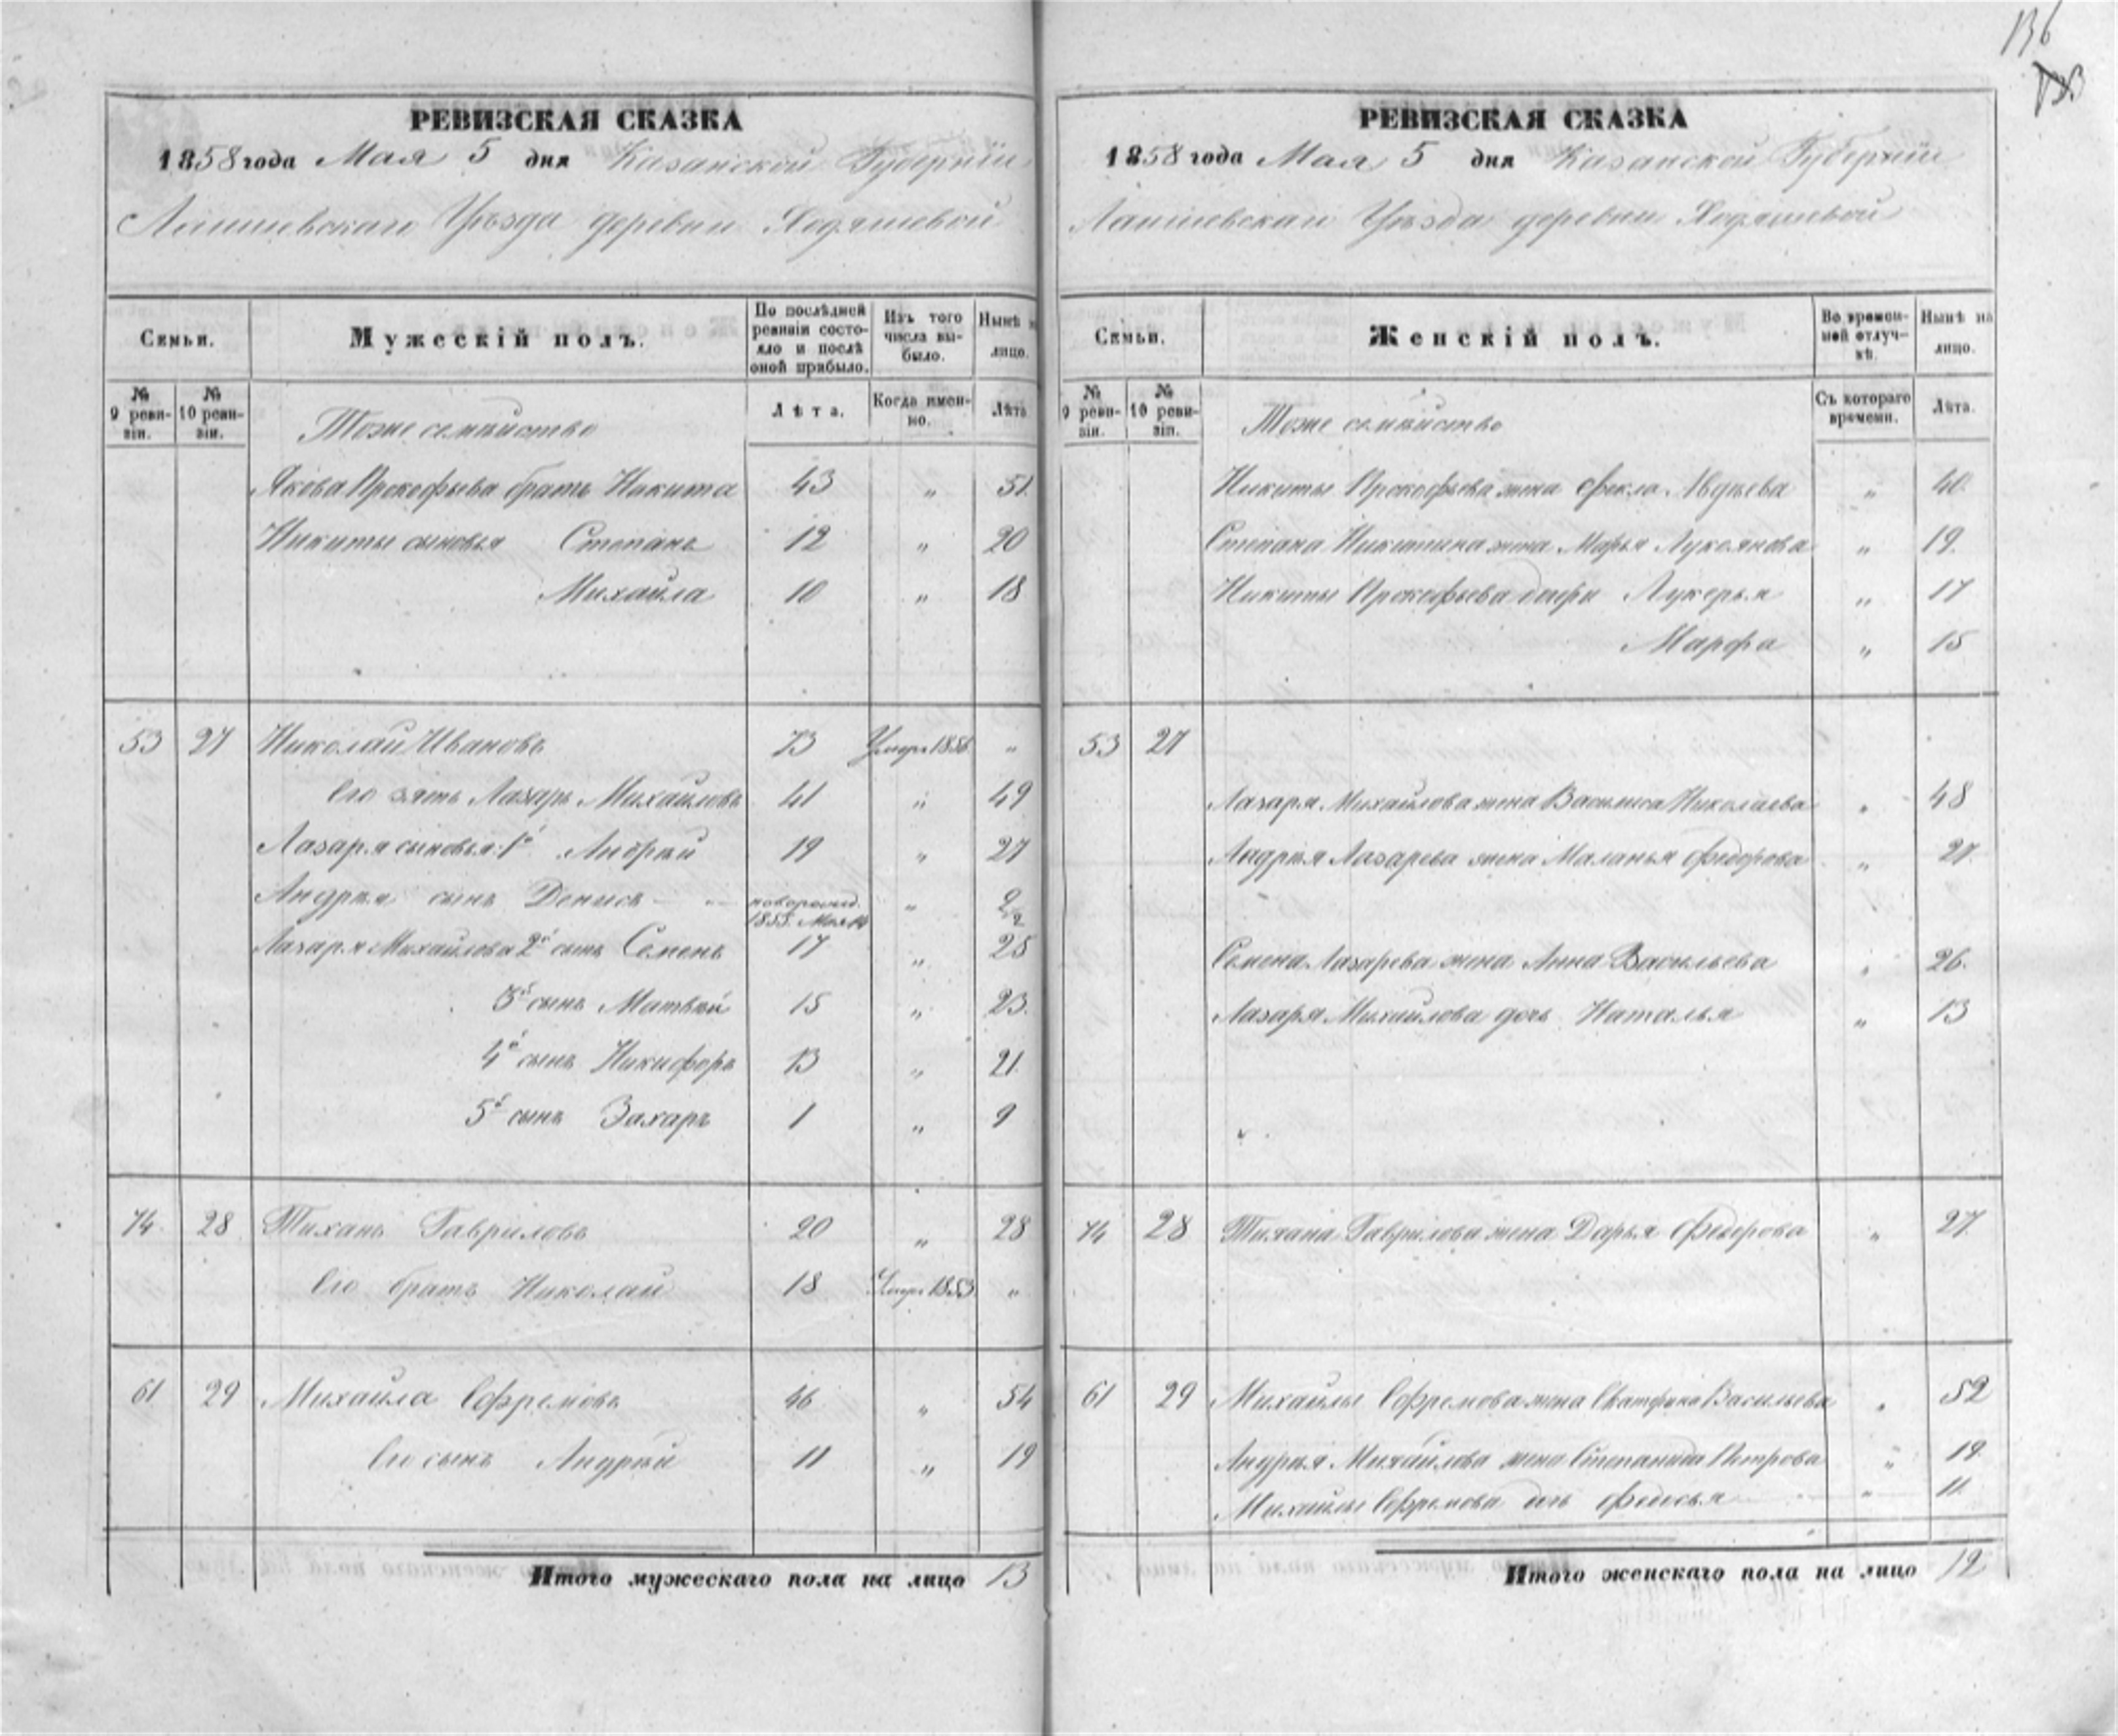 136
РЕВИЗСКАЯ СКАЗКА
1858 года Мая 5 дня Казанской Губерніи
Лаишевскаго Уѣзда деревни Ходяшевой
Семьи.
Мужескій полъ.
По послѣдней ревизіи состояло и послѣ оной прибыло.
Изъ того числа выбыло.
Нынѣ на лицо.
№ 9 ревизіи.
№ 10 ревизіи.
Тоже семейство
Лѣта.
Когда именно.
Лѣта
Якова Прокофьева братъ Никита 43 „ 51
Никиты сыновья Степанъ 12 „ 20
Михайла 10 „ 18
53 27 Николай Ивановъ 73 Умеръ 1856 „
Его зять Лазарь Михайловъ 41 „ 49
Лазаря сыновья: 1й Андрей 19 „ 27
Андрея сынъ Денисъ новорожд. 1855. Мая „ 2/2
Лазаря Михайлова 2й сынъ Семенъ 17 „ 25
3й сынъ Матвѣй 15 „ 23.
4й сынъ Никифоръ 13 „ 21.
5й сынъ Захаръ 1 „ 9
74 28 Тиханъ Гавриловъ 20 „ 28
Его братъ Николай 18 Умеръ 1853 „
61 29 Михайла Ефремовъ 46 „ 54
Его сынъ Андрей 11 „ 19
Итого мужескаго пола на лицо 13
РЕВИЗСКАЯ СКАЗКА
1858 года Мая 5 дня Казанской Губерніи
Лаишевскаго Уѣзда деревни Ходяшевой
Семьи.
Женскій полъ.
Во временной отлучкѣ.
Нынѣ на лицо.
№ 9 ревизіи.
№ 10 ревизіи.
Тоже семейство
Съ котораго времени.
Лѣта.
Никиты Прокофьева жена Фекла Авдѣева „ 40.
Степана Никитина жена Марья Лукоянова „ 19.
Никиты Прокофьева дочери Лукерья „ 17
Марфа „ 15
53 27
Лазаря Михайлова жена Василиса Николаева „ 48
Андрея Лазарева жена Маланья Федорова „ 27.
Семена Лазарева жена Анна Васильева „ 26.
Лазаря Михайлова дочь Наталья „ 13
74 28 Тихана Гаврилова жена Дарья Федорова „ 27.
61 29 Михайлы Ефремова жена Екатерина Васильева „ 52
Андрея Михайлова жена Степанида Петрова „ 19.
Михайлы Ефремова дочь Федосья „ 11.
Итого женскаго пола на лицо 12